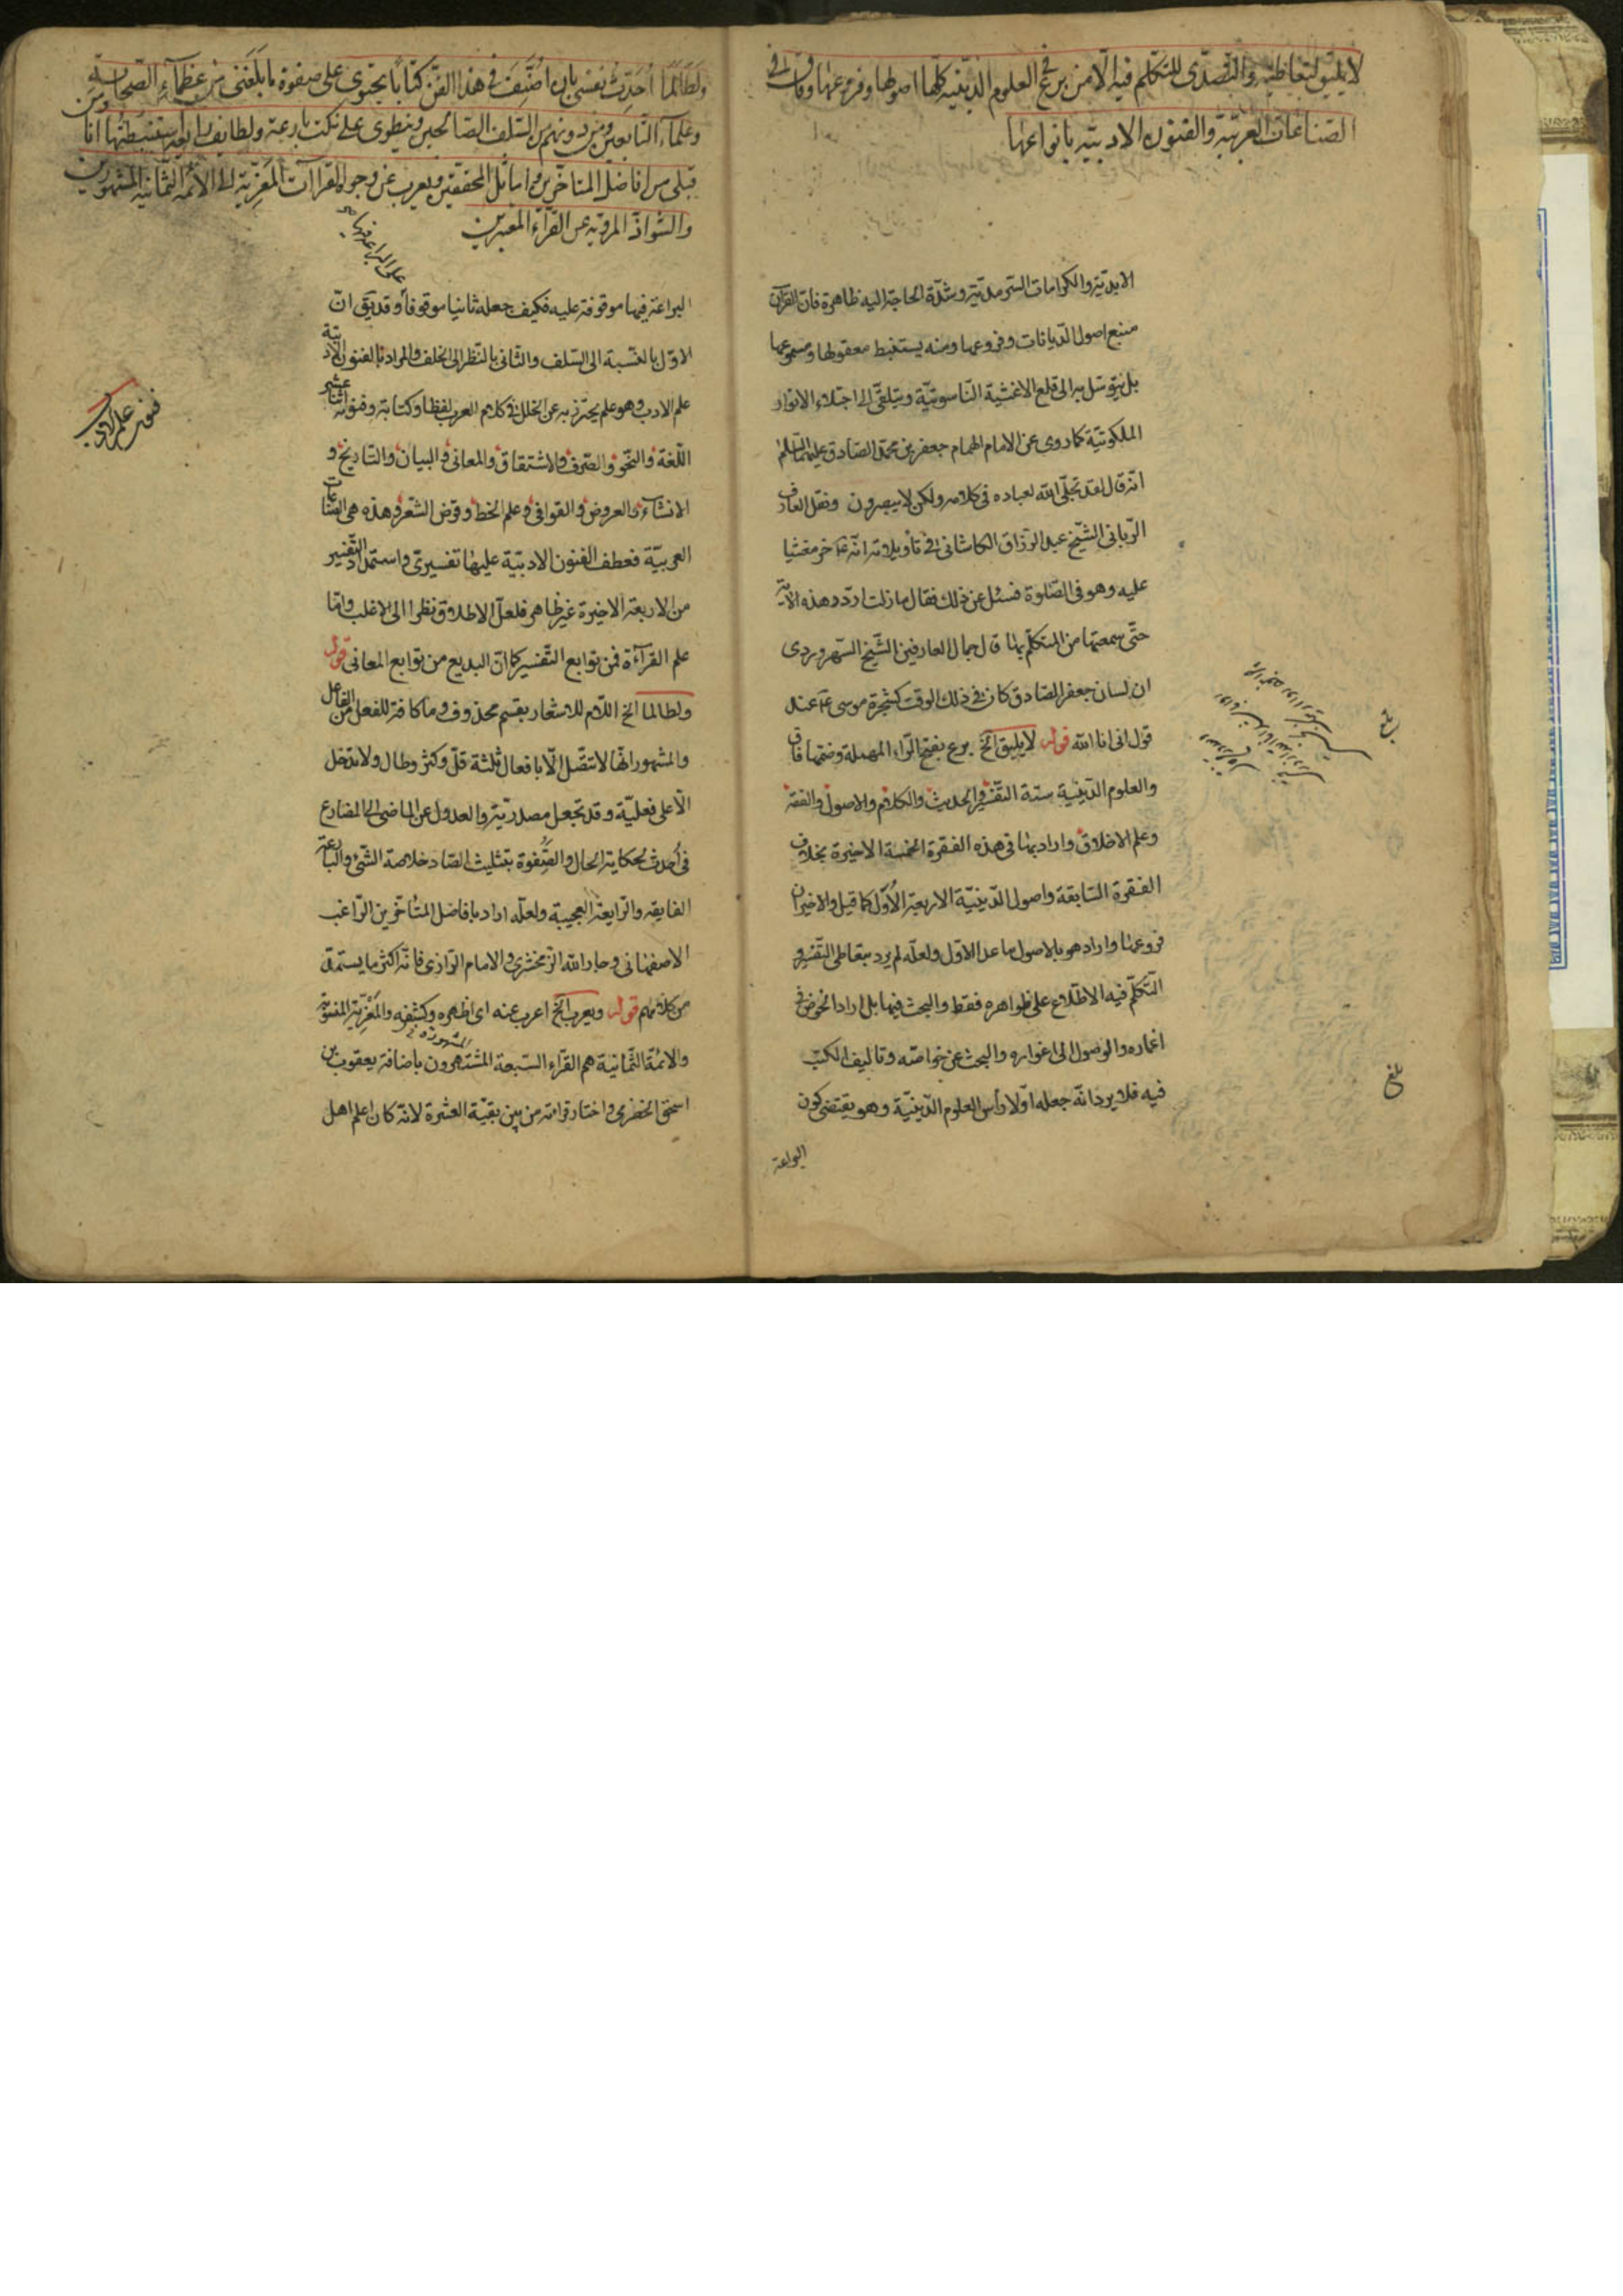 لا يليق لتعاطيه والتصدى للتكلم فيه الا من برع فى العلوم الدينيه كلها اصولها وفروعها وفاق فى
الصناعات العربية والفنون الادبيه بانواعها
الابديّة والكرامات السّرمديّة وشدّة الحاجة اليه ظاهرة فانّ القرآن
منبع اصول الدّيانات وفروعها ومنه يستنبط معقولها ومسموعها
بل يتوسّل به الى قلع الاغشية النّاسوتيّة ويتلقّى الى اجتلاء الانوار
الملكوتيّة كما روى عن الامام الهمام جعفر بن محمّد الصّادق عليهما السّلم
انّه قال لقد تجلّى الله لعباده فى كلامه ولكن لا يبصرون ونقل العارف
الرّبانى الشّيخ عبد الرّزاق الكاشانى فى تأويلاته انّه خر مغشيا
عليه وهو فى الصّلوة فسئل عن ذلك فقال ما زلت اردّد هذه الآية
حتّى سمعتها من المتكلّم بها قال جمال العارفين الشّيخ السّهروردى
ان لسان جعفر الصّادق كان فى ذلك الوقت كشجرة موسى ع عند
قول انى انا الله قوله لا يليق الخ برع بفتح الرّاء المهملة وضمّها فاق
والعلوم الدّينية ستة التّفسير والحديث والكلام والاصول والفقه
وعلم الاخلاق واراد بها فى هذه الفقرة الخمسة الاخيرة بخلاف
الفقرة السّابقة واصول الدّينيّة الاربعة الاُوّل كما قيل والاخيران
فروعها واراد هو بالاصول ما عدا الاوّل ولعلّه لم يرد بتعاطى التّفسير و
التّكلّم فيه الاطّلاع على ظواهره فقط والبحث فيها بل اراد الخوض فى
اغماره والوصول الى اغواره والبحث عن خواصّه وتاليف الكتب
فيه فلا يرد انّه جعله اوّلا رأس العلوم الدّينيّة وهو يقتضى كون
البراعة
بلغ
بلغ
ولطالما اُحدّث نفسى بان اُصنّف فى هذا الفن كتاباً يحتوى على صفوة ما بلغنى من عظماء الصحابة
وعلماء التابعين ومن دونهم من السلف الصالحين وينطوى على نكت بارعة ولطايف رايعة استنبطتها انا ومن
قبلى من افاضل المتاخرين واماثل المحققين ويعرب عن وجوه القراآت المعزيّة الى الائمه الثمانيه المشهورين
والشواذّ المرويه عن القرّاء المعتبرين
البراعة فيها موقوفة عليه فكيف جعله ثانيا موقوفاً وقد يق انّ
الاوّل بالنّسبة الى السّلف والثانى بالنّظر الى الخلف والمراد بالفنون الادبيّة
علم الادب وهو علم يحترز به عن الخلل فى كلام العرب لفظا وكتابة وفنونه اثنا عشر
اللّغة والنّحو والصّرف والاشتقاق والمعانى والبيان والتّاريخ و
الانشاء والعروض والقوافى وعلم الخطّ وقرض الشّعر وهذه هى الصّناعات
العربيّة فعطف الفنون الادبيّة عليها تفسيرىّ واستمداد التّفسير
من الاربعة الاخيرة غير ظاهر فلعلّ الاطلاق نظرا الى الاغلب وامّا
علم القرآءة فمن توابع التّفسير كما انّ البديع من توابع المعانى قوله
ولطالما الخ اللّام للاشعار بقسم محذوف وما كافة للفعل من الفاعل
والمشهور انّها لا تتّصل الّا بافعال ثلثة قلّ وكثر وطال ولا تدخل
الّا على فعليّة وقد تجعل مصدريّة والعدول عن الماضى الى المضارع
فى اُحدث لحكاية الحال والصّفوة بتثليث الصّاد خلاصة الشّئ والبارعة
الفايقه والرّايعة العجيبة ولعلّه اراد بافاضل المتأخّرين الرّاغب
الاصفهانى وجار الله الزّمخشرى والامام الرّازى فانّه اكثر ما يستمدّ
من كلامهم قوله ويعرب الخ اعرب عنه اى اظهره وكشفه والمعزيّة المنسوبة
والائمّة الثّمانية هم القرّاء السّبعة المشتهرون باضافة يعقوب بن
اسحق الحضرمى واختار قراءته من بين بقيّة العشرة لانّه كان اعلم اهل
فنون علم الادب